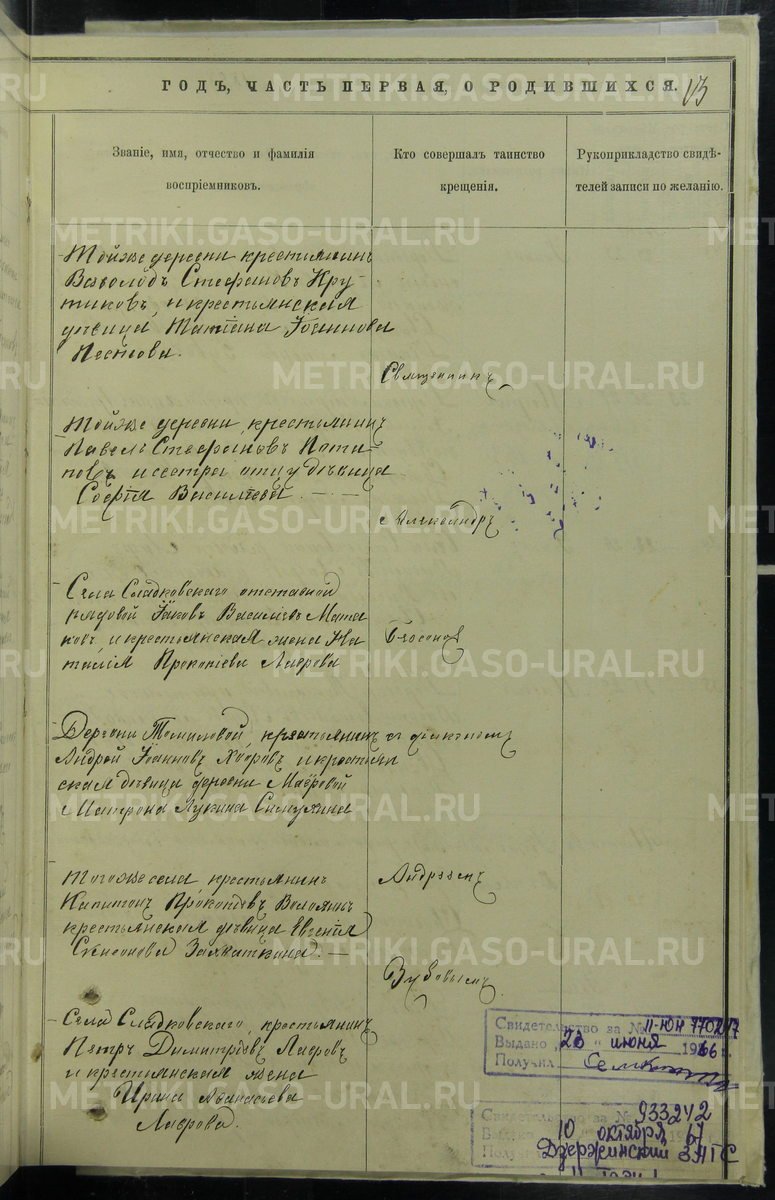 ГОДЪ, ЧАСТЬ ПЕРВАЯ, О РОДИВШИХСЯ.
13
Званіе, имя, отчество и фамилія
воспріемниковъ.
Кто совершалъ таинство
крещенія.
Рукоприкладство свидѣ-
телей записи по желанію.
Тойже деревни крестьянинъ
Всеволодъ Стефановъ Кру-
тиковъ, и крестьянская
дѣвица Татіана Іоаннова
Пестова.
Священникъ
Тойже деревни, крестьянинъ
Павелъ Стефановъ Поти-
повъ и сестра отцу дѣвица
Софія Василіева. — —
Александръ
Села Сладковскаго отставной
рядовой Іаковъ Василіевъ Мата
ковъ, и крестьянская жена На
талія Прокопіева Лаврова
Бѣсоновъ
Деревни Томиловой, крестьянинъ
Андрей Іоанновъ Хабровъ и крестьян
ская дѣвица деревни Мавровой
Матрона Лукина Синухина
съ діакономъ
Тогоже села, крестьянинъ
Капитонъ Прокопіевъ Волоянъ
крестьянская дѣвица Евгенія
Симеонова Замяткина. —
Андреемъ
Зубовымъ.
Села Сладковскаго, крестьянинъ
Петръ Димитріевъ Лавровъ
и крестьянская жена
Ирина Аѳанасьева
Лаврова.
Свидетельство за № II-ЮН 770217
Выдано „23" июня 1966 г.
Получил
Свидетельство за № 933242
10 октября 67
Дзержинский ЗАГС
METRIKI.GASO-URAL.RU